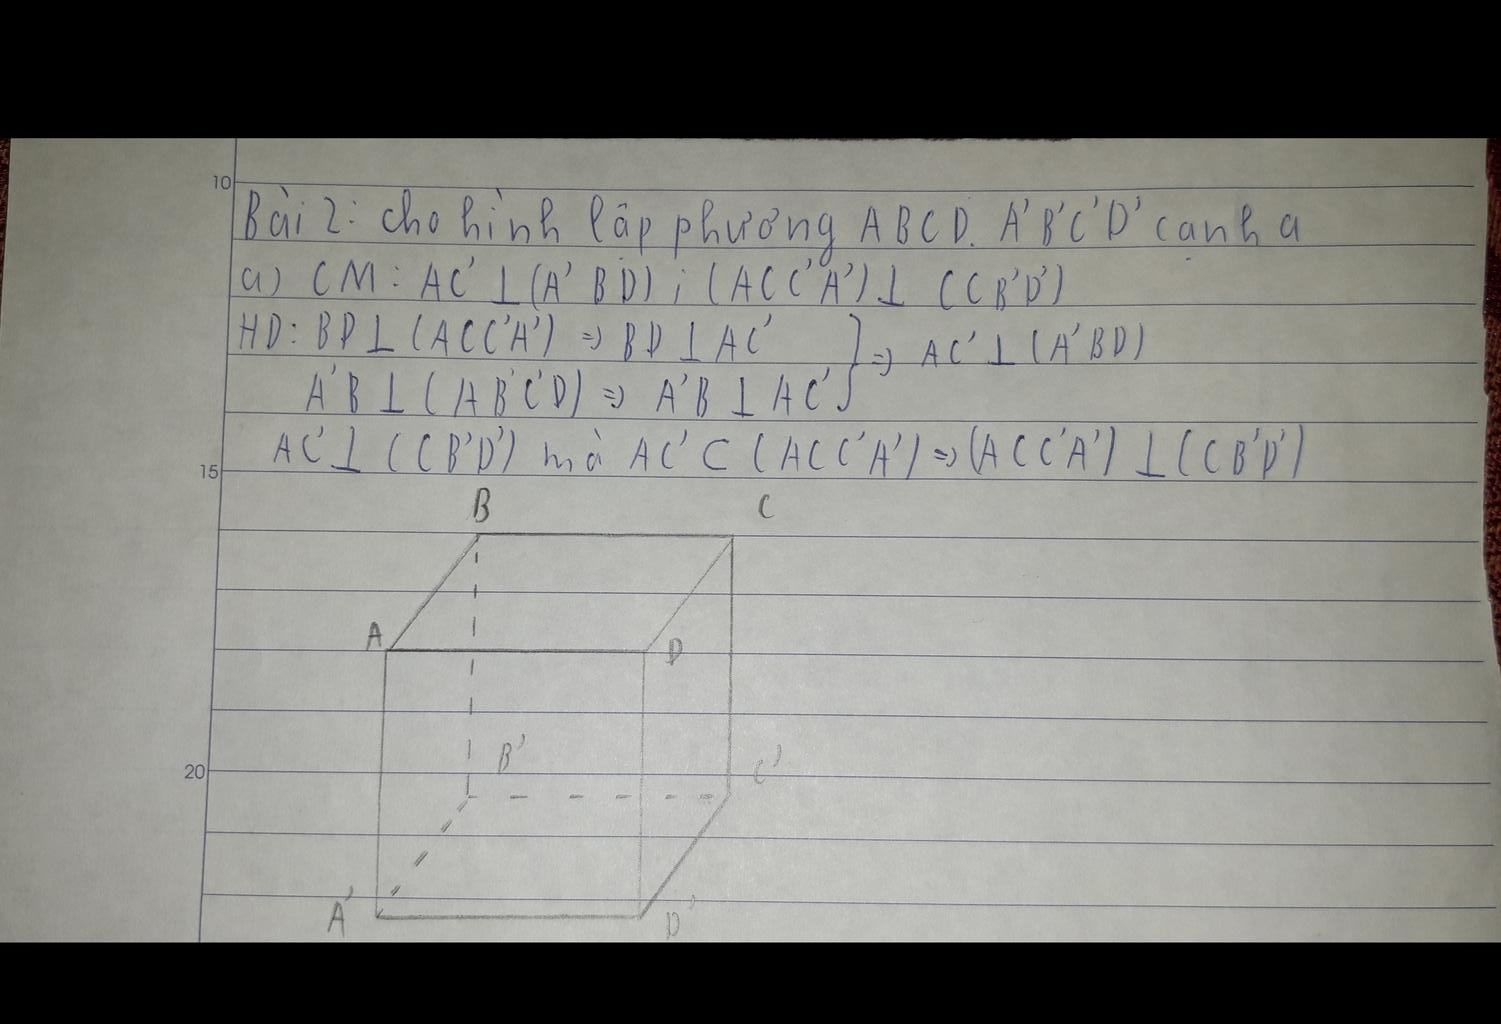 10
Bài 2: cho hình lập phương ABCD. A'B'C'D' cạnh a
a) CM: AC' ⊥ (A'BD) ; (ACC'A') ⊥ (CB'D')
HD: BD ⊥ (ACC'A') => BD ⊥ AC' } => AC' ⊥ (A'BD)
A'B ⊥ (AB'C'D) => A'B ⊥ AC'
AC' ⊥ (CB'D') mà AC' ⊂ (ACC'A') => (ACC'A') ⊥ (CB'D')
15
B C
A D
B' C'
20
A' D'